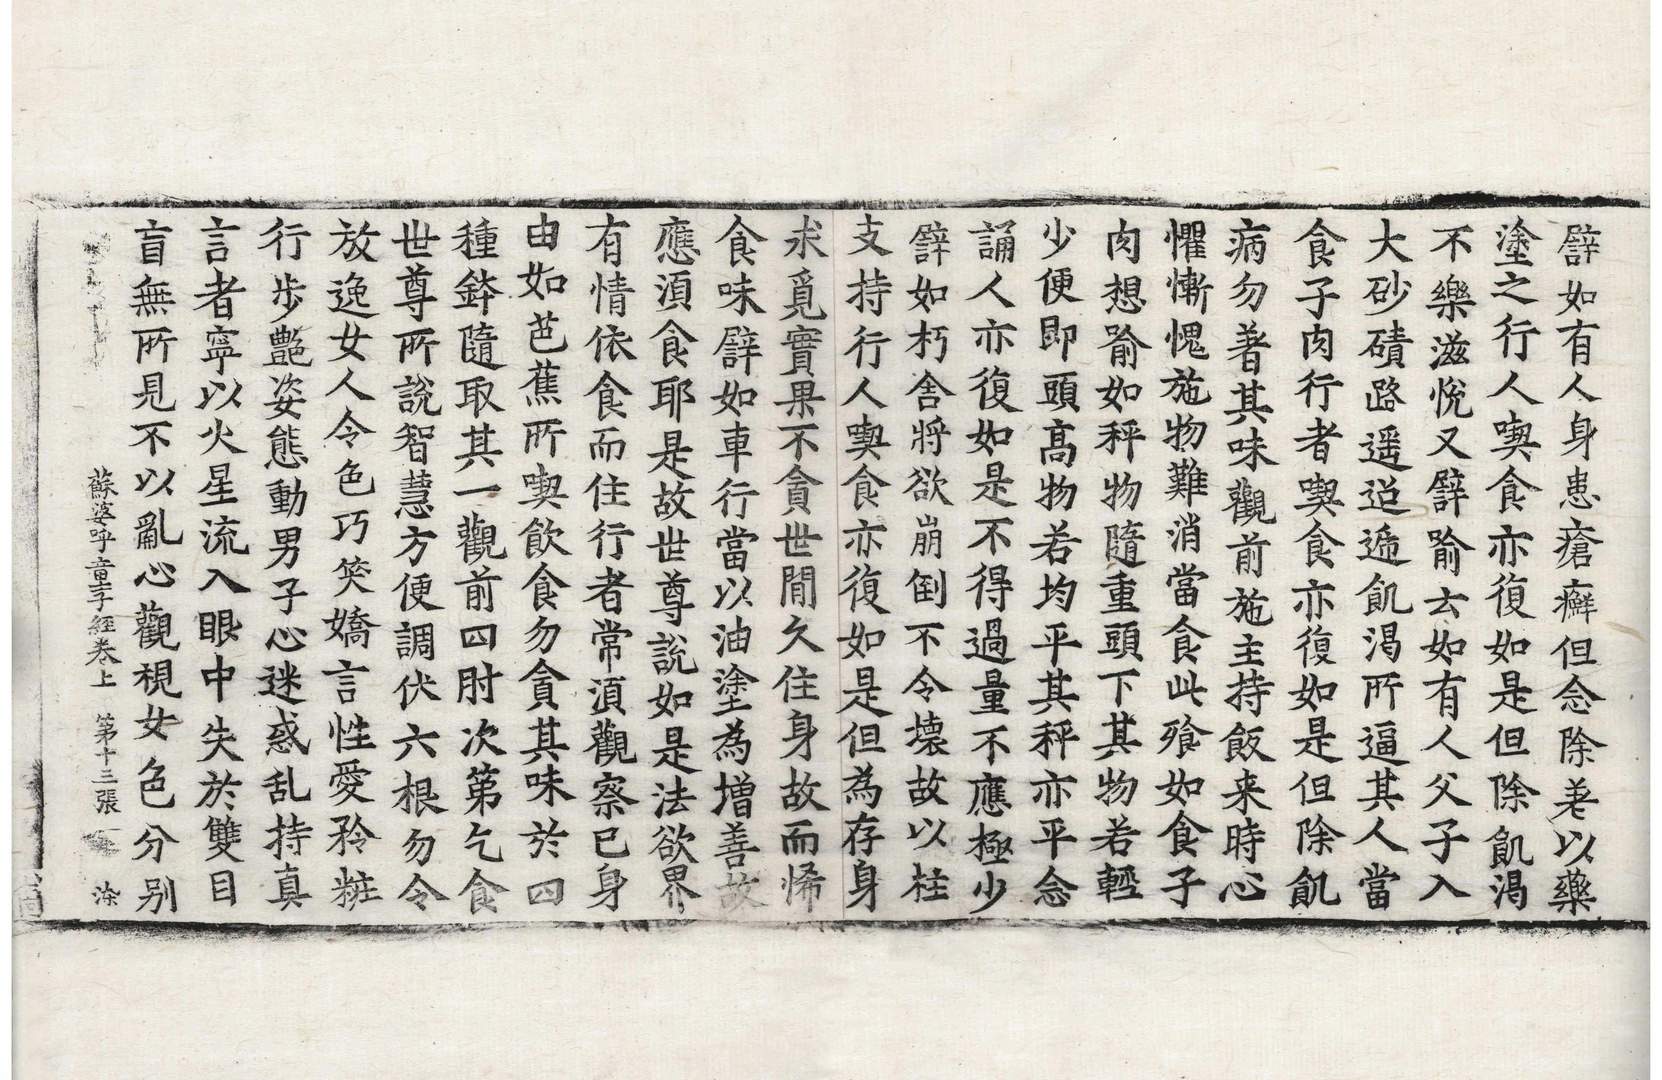 譬如有人身患瘡癬但念除差以藥
塗之行人喫食亦復如是但除飢渴
不樂滋悅又譬喻去如有人父子入
大砂磧路遥迢逓飢渴所逼其人當
食子肉行者喫食亦復如是但除飢
病勿著其味觀前施主持飯来時心
懼慚愧施物難消當食此飡如食子
肉想喻如秤物隨重頭下其物若輕
少便即頭高物若均平其秤亦平念
誦人亦復如是不得過量不應極少
譬如朽舍將欲崩倒不令壞故以柱
支持行人喫食亦復如是但為存身
求覓實果不貪世間久住身故而悕
食味譬如車行當以油塗為增善故
應湏食耶是故世尊說如是法欲界
有情依食而住行者常湏觀察已身
由如芭蕉所喫飲食勿貪其味於四
種鉢隨取其一觀前四肘次第乞食
世尊所說智慧方便調伏六根勿令
放逸女人令色巧笑嬌言性愛矜粧
行步艶姿態動男子心迷惑乱持真
言者寧以火星流入眼中失於雙目
盲無所見不以亂心觀視女色分别
蘇婆呼童子經卷上 第十三張 染